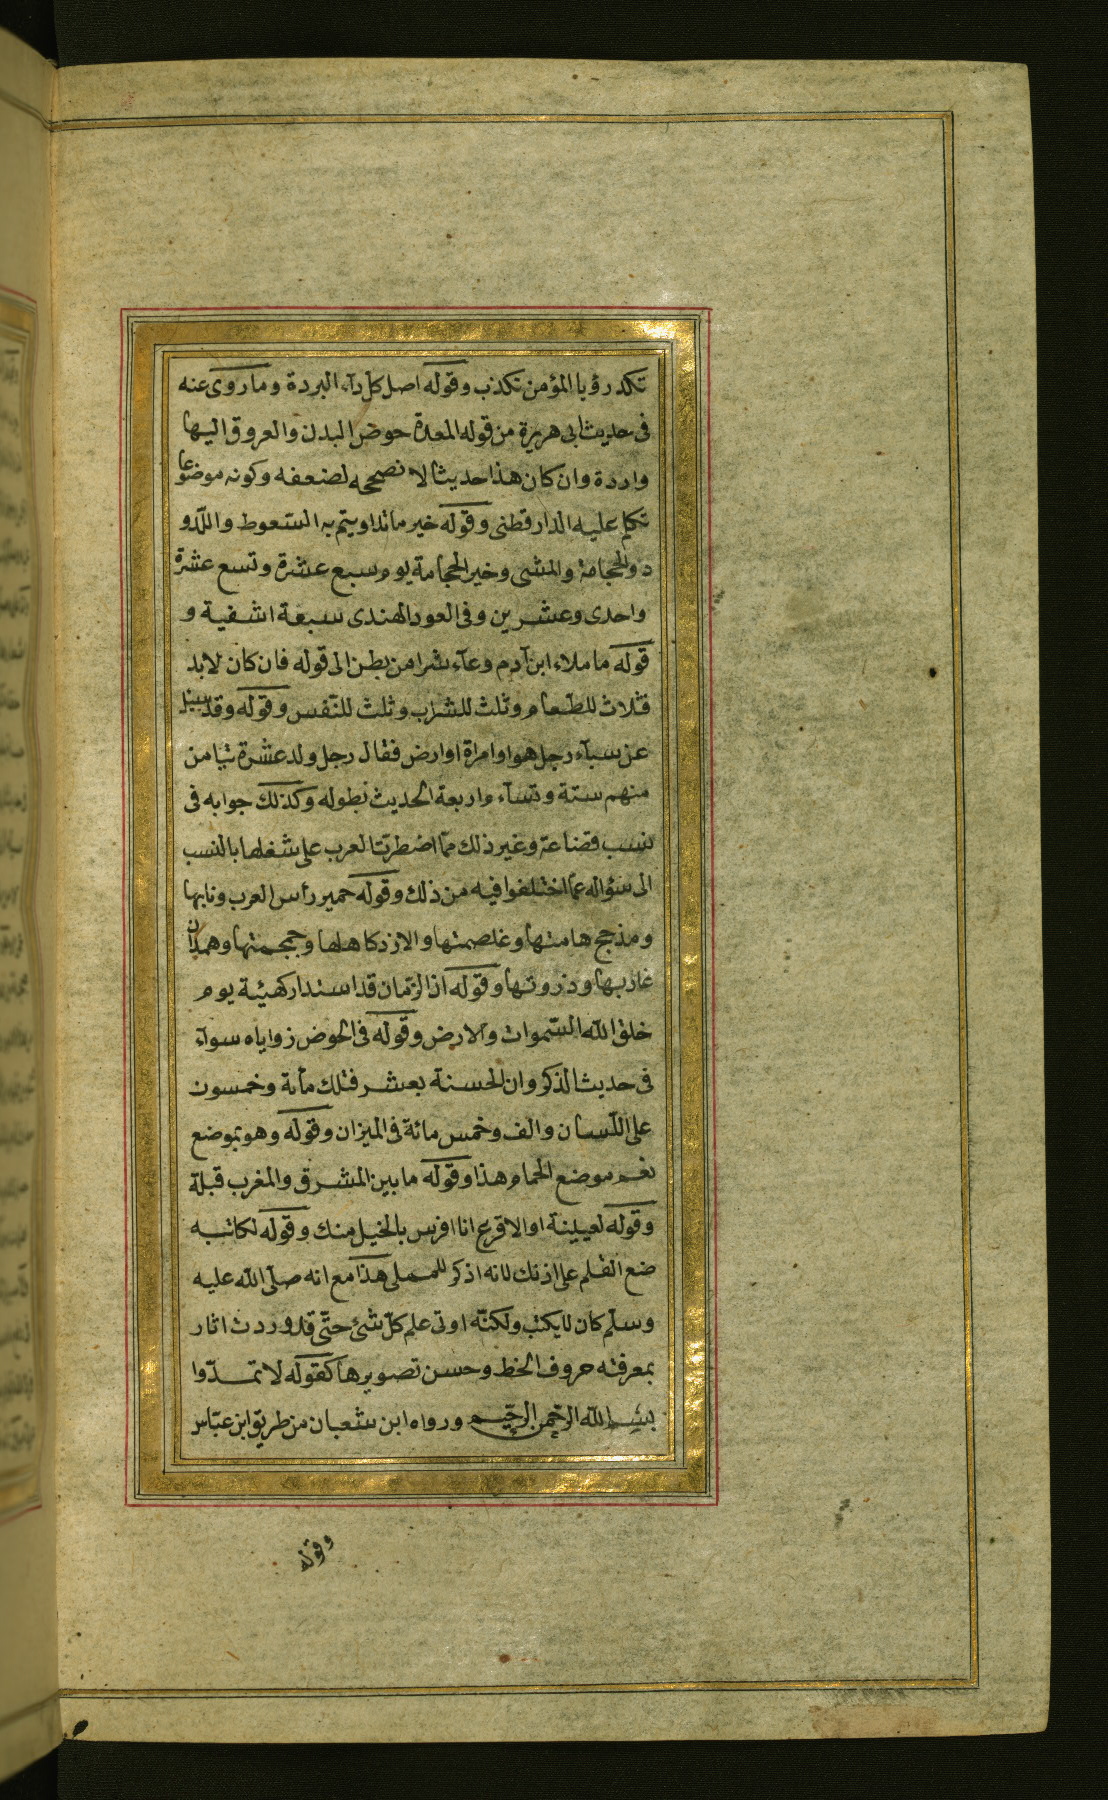 تكد رؤيا المؤمن تكذب وقوله اصل كل دآء البردة وما روى عنه
فى حديث ابى هريرة من قوله المعدة حوض البدن والعروق اليها
واردة وان كان هذا حديثا لا نصححه لضعفه وكونه موضوعا
تكلم عليه الدارقطنى وقوله خير ما تداويتم به السّعوط واللّدو
د والحجامة والمشى وخير الحجامة يوم سبع عشرة وتسع عشرة
واحدى وعشرين وفى العود الهندى سبعة اشفية و
قوله ما ملاء ابن آدم وعآء شرا من بطن الى قوله فان كان لا بد
فثلاث للطّعام وثلث للشراب وثلث للنّفس وقوله وقد سئل
عن سبآء رجل هو او امراة او ارض فقال رجل ولد عشرة تيامن
منهم ستة وتسآء م اربعة الحديث بطوله وكذلك جوابه فى
نسب قضاعة وغير ذلك ممّا اضطرت العرب على شغلها بالنسب
الى سؤاله عما اختلفوا فيه من ذلك وقوله حمير رأس العرب ونابها
ومذحج هامتها وغلصمتها والازد كاهلها وجمجمتها وهمدان
غاربها وذروتها وقوله ان الزّمان قد استدار كهيئة يوم
خلق الله السّموات والارض وقوله فى الحوض زواياه سوآء
فى حديث الذكر وان الحسنة بعشر فتلك مأية وخمسون
على اللّسان والف وخمس مائة فى الميزان وقوله وهو بموضع
نعم موضع الحمام هذا وقوله ما بين المشرق والمغرب قبلة
وقوله لعيينة او الاقرع انا افرس بالخيل منك وقوله لكاتبه
ضع القلم على اذنك لانه اذكر للمملى هذا مع انه صلّى الله عليه
وسلّم كان لا يكتب ولكنّه اوتى علم كلّ شئ حتّى قد وردت اثار
بمعرفته حروف الخط وحسن تصويرها كقوله لا تمدّوا
بسم الله الرّحمن الرّحيم ورواه ابن شعبان من طريق ابن عبّاس
وقوله